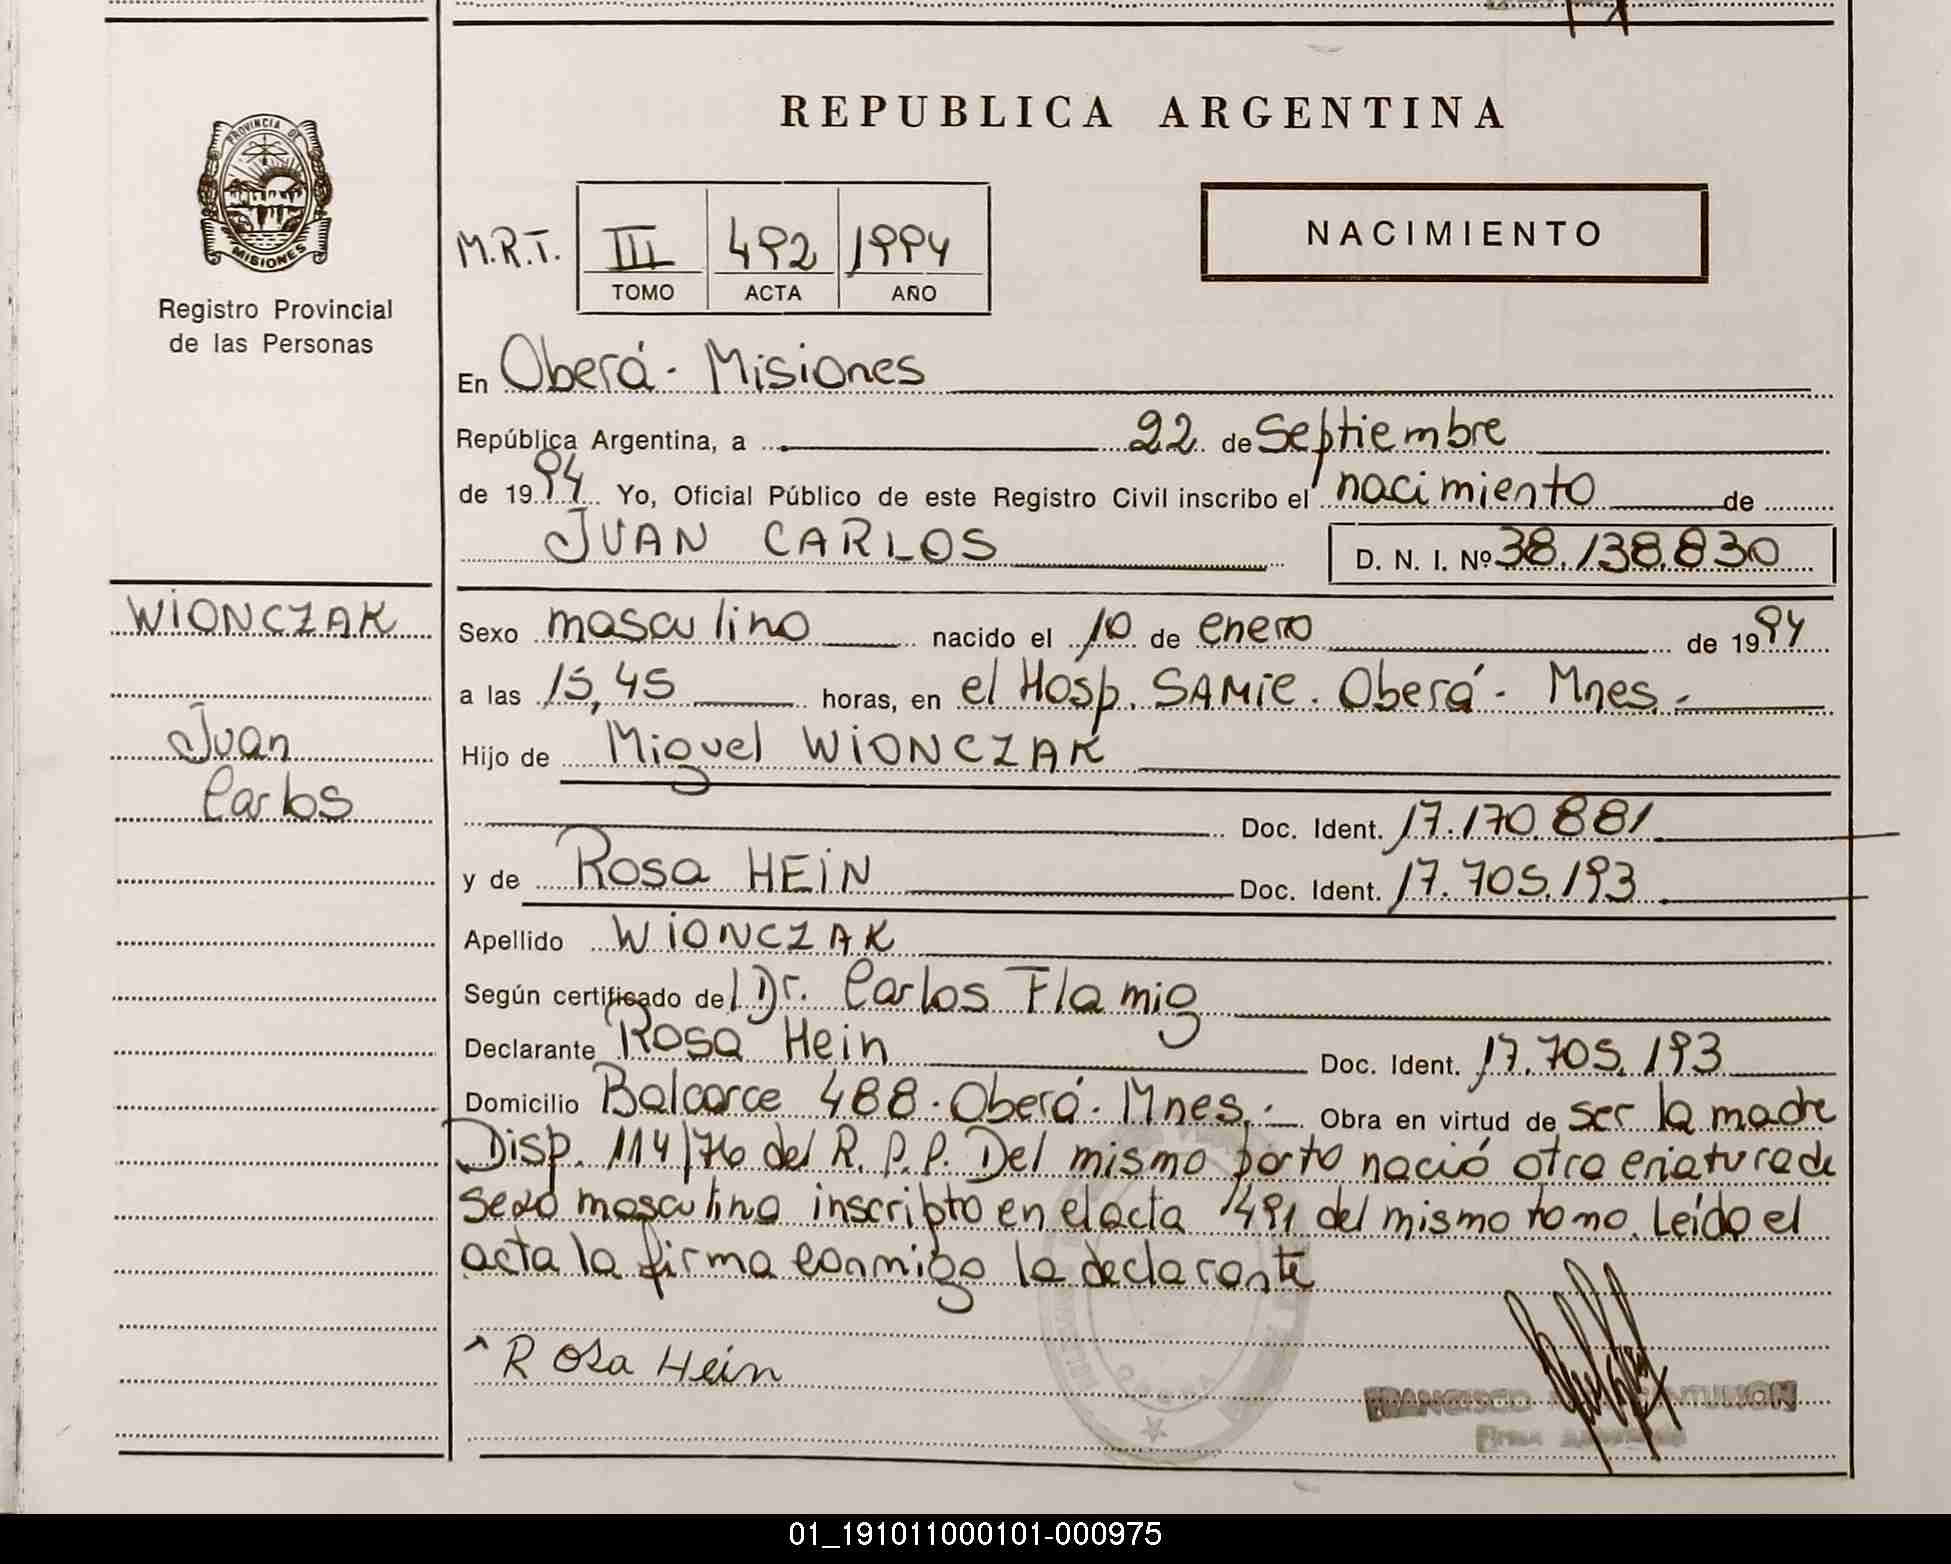 REPUBLICA ARGENTINA
PROVINCIA DE
MISIONES
Registro Provincial
de las Personas
M.R.T. III 492 1994
TOMO ACTA AÑO
NACIMIENTO
En Oberá - Misiones
República Argentina, a 22 de Septiembre
de 1994 Yo, Oficial Público de este Registro Civil inscribo el nacimiento de
JUAN CARLOS D. N. I. Nº 38.138.830
WIONCZAK
Juan
Carlos
Sexo masculino nacido el 10 de enero de 1994
a las 15,45 horas, en el Hosp. SAMIC. Oberá - Mnes.-
Hijo de Miguel WIONCZAK
Doc. Ident. 17.170.881
y de Rosa HEIN Doc. Ident. 17.705.193
Apellido WIONCZAK
Según certificado del Dr. Carlos Flamig
Declarante Rosa Hein Doc. Ident. 17.705.193
Domicilio Balcarce 488 - Oberá - Mnes.- Obra en virtud de ser la madre
Disp. 114/76 del R. P. P. Del mismo parto nació otra criatura de
sexo masculino inscripto en el acta 491 del mismo tomo. Leído el
acta la firma conmigo la declarante
Rosa Hein
FRANCISCO
01_191011000101-000975